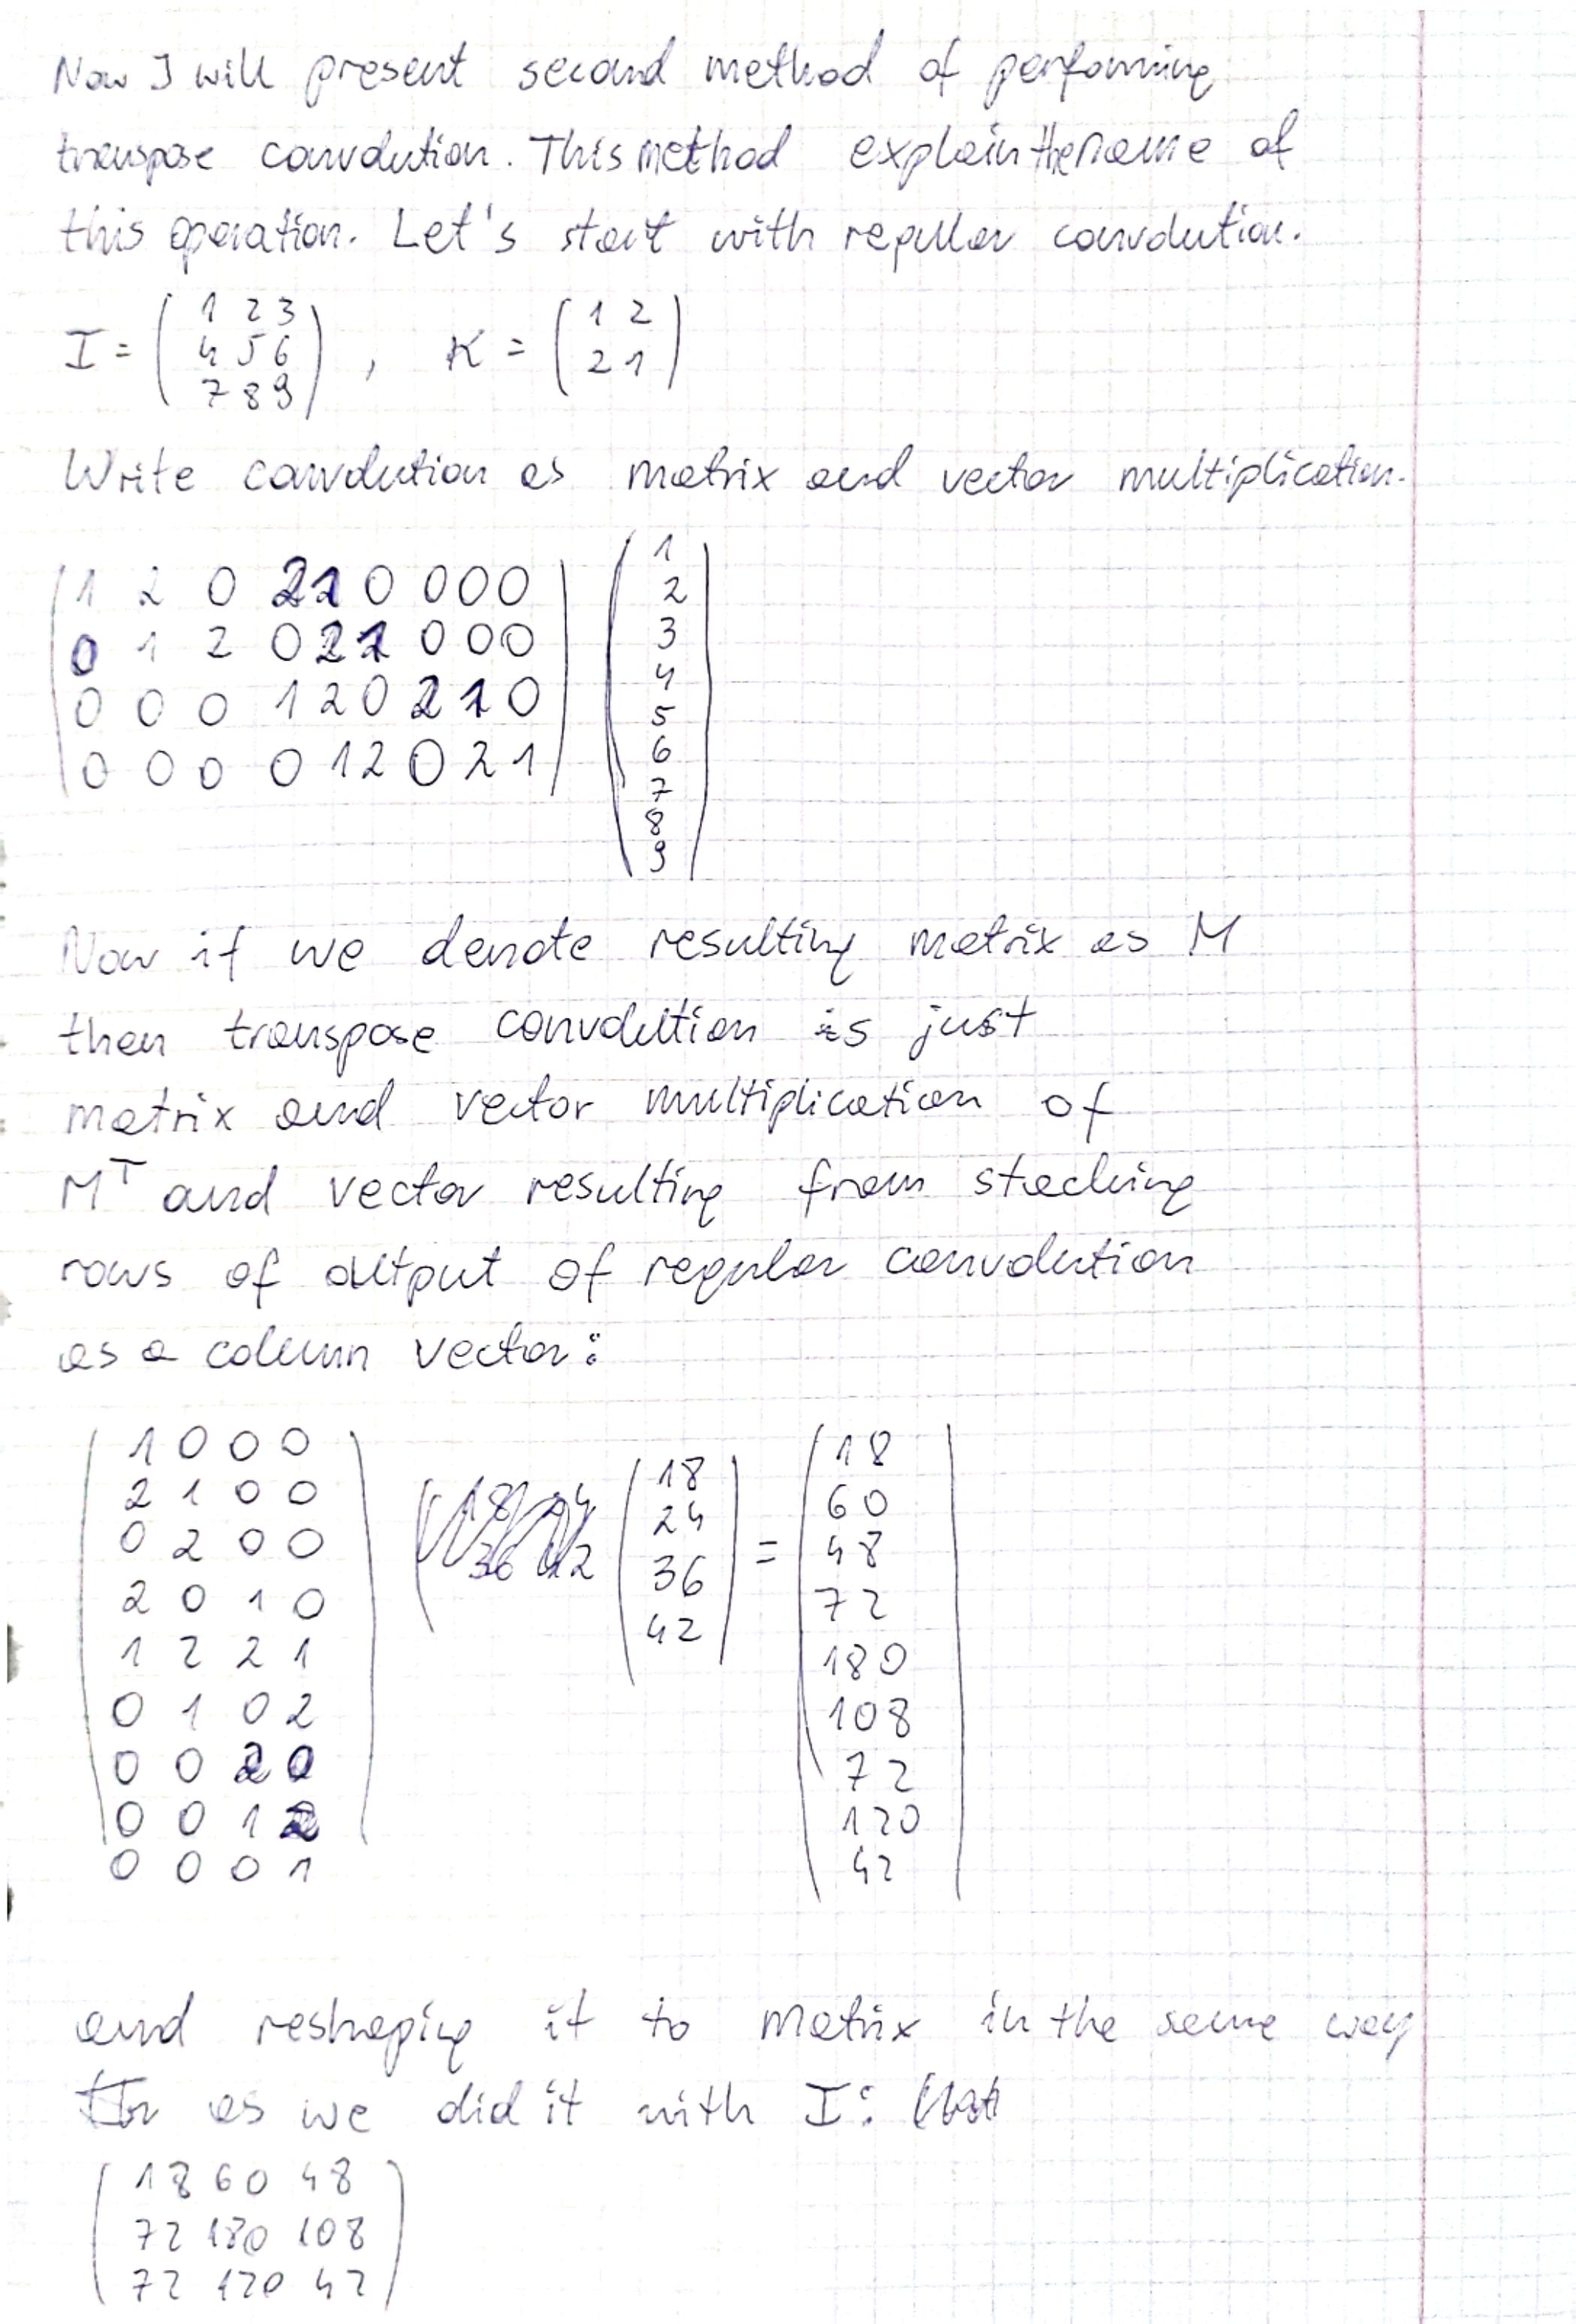 Now I will present second method of performing
transpose convolution. This method explain the name of
this operation. Let's start with regular convolution.
I = ( 1 2 3 ) , K = ( 1 2 )
4 5 6 2 1
7 8 9
Write convolution as matrix and vector multiplication.
1 2 0 2 1 0 0 0 0 1
0 1 2 0 2 1 0 0 0 2
0 0 0 1 2 0 2 1 0 3
0 0 0 0 1 2 0 2 1 4
5
6
7
8
9
Now if we denote resulting matrix as M
then transpose convolution is just
matrix and vector multiplication of
Mᵀ and vector resulting from stacking
rows of output of regular convolution
as a column vector:
1 0 0 0 18
2 1 0 0 18 60
0 2 0 0 24 48
2 0 1 0 36 = 72
1 2 2 1 42 180
0 1 0 2 108
0 0 2 0 72
0 0 1 2 120
0 0 0 1 42
and reshaping it to matrix in the same way
as we did it with I:
18 60 48
72 180 108
72 120 42